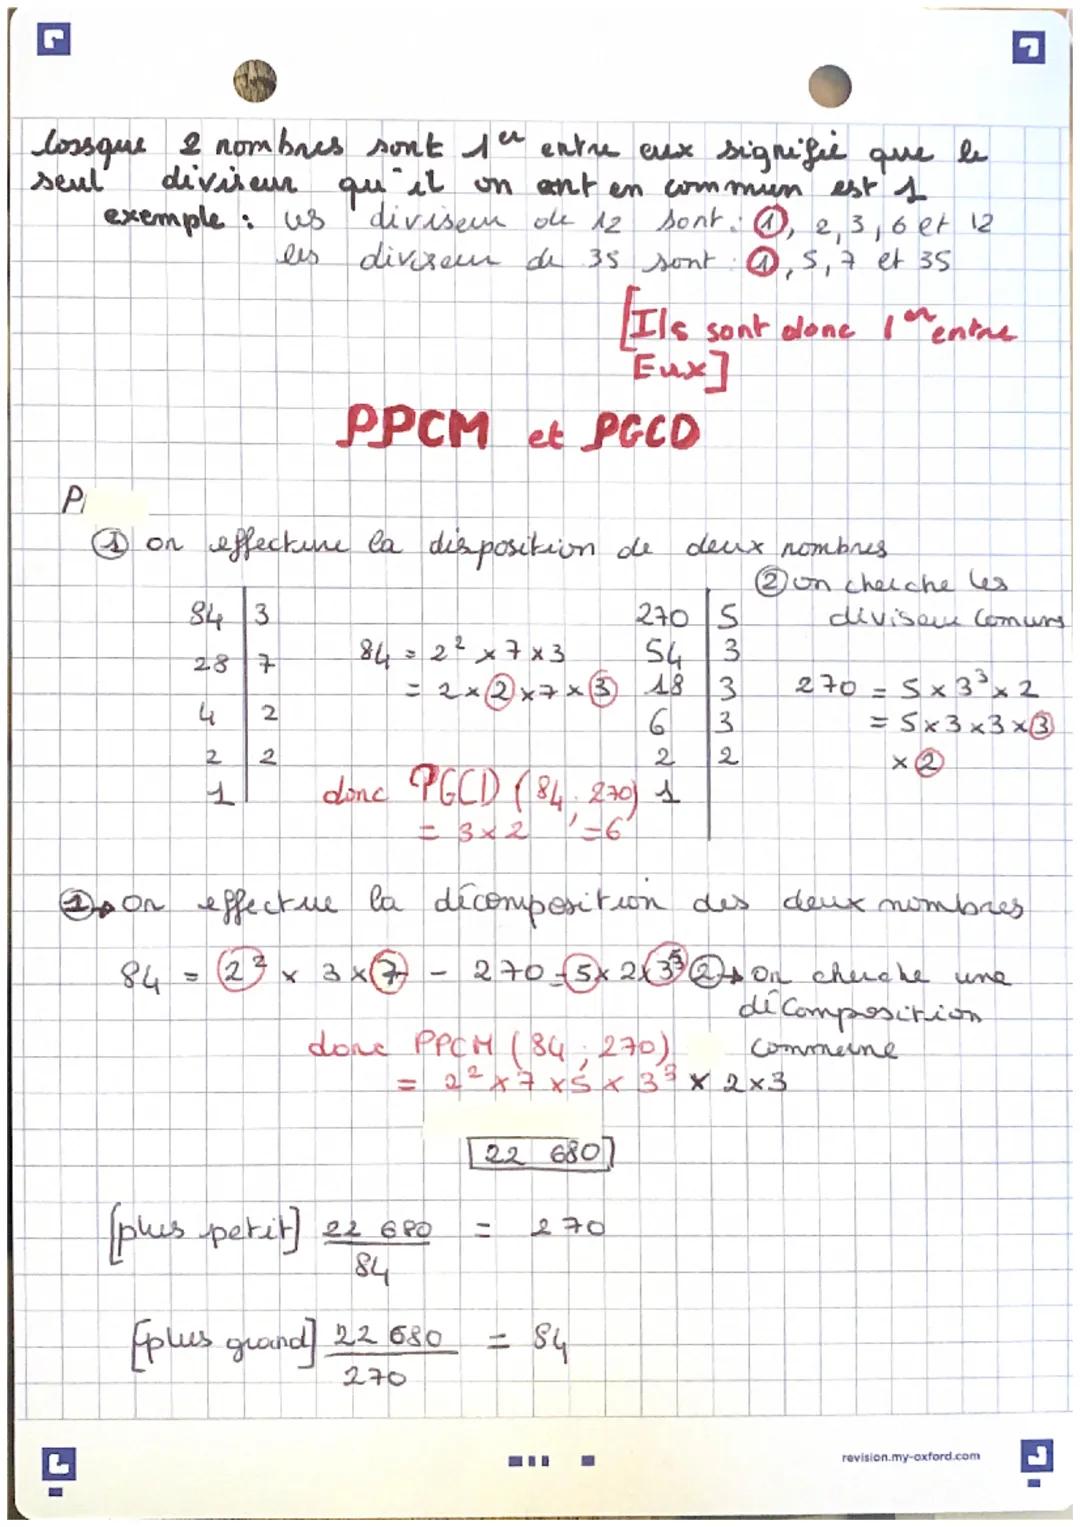 lossque 2 nombres sont 1er entre eux signifie que le
seul diviseur qu'il on ont en commun est 1
exemple : les diviseur de 12 sont : 1, 2, 3, 6 et 12
les diviseur de 35 sont : 1, 5, 7 et 35
[Ils sont donc 1er entre
Eux]
PPCM et PGCD
① on effectue la disposition de deux nombres
② on cherche les
diviseur Comuns
84 | 3
28 | 7
4 | 2
2 | 2
1
84 = 2² x 7 x 3
= 2 x 2 x 7 x 3
donc PGCD (84 ; 270)
= 3 x 2 = 6
270 | 5
54 | 3
18 | 3
6 | 3
2 | 2
1
270 = 5 x 3³ x 2
= 5 x 3 x 3 x 3
x 2
① → On effectue la décomposition des deux nombres
84 = 2² x 3 x 7 - 270 = 5 x 2 x 3³ ② → on cherche une
décomposition
commune
donc PPCM (84 ; 270)
= 2² x 7 x 5 x 3³ x 2 x 3
[22 680]
[plus petit] 22 680 / 84 = 270
[plus grand] 22 680 / 270 = 84
revision.my-oxford.com